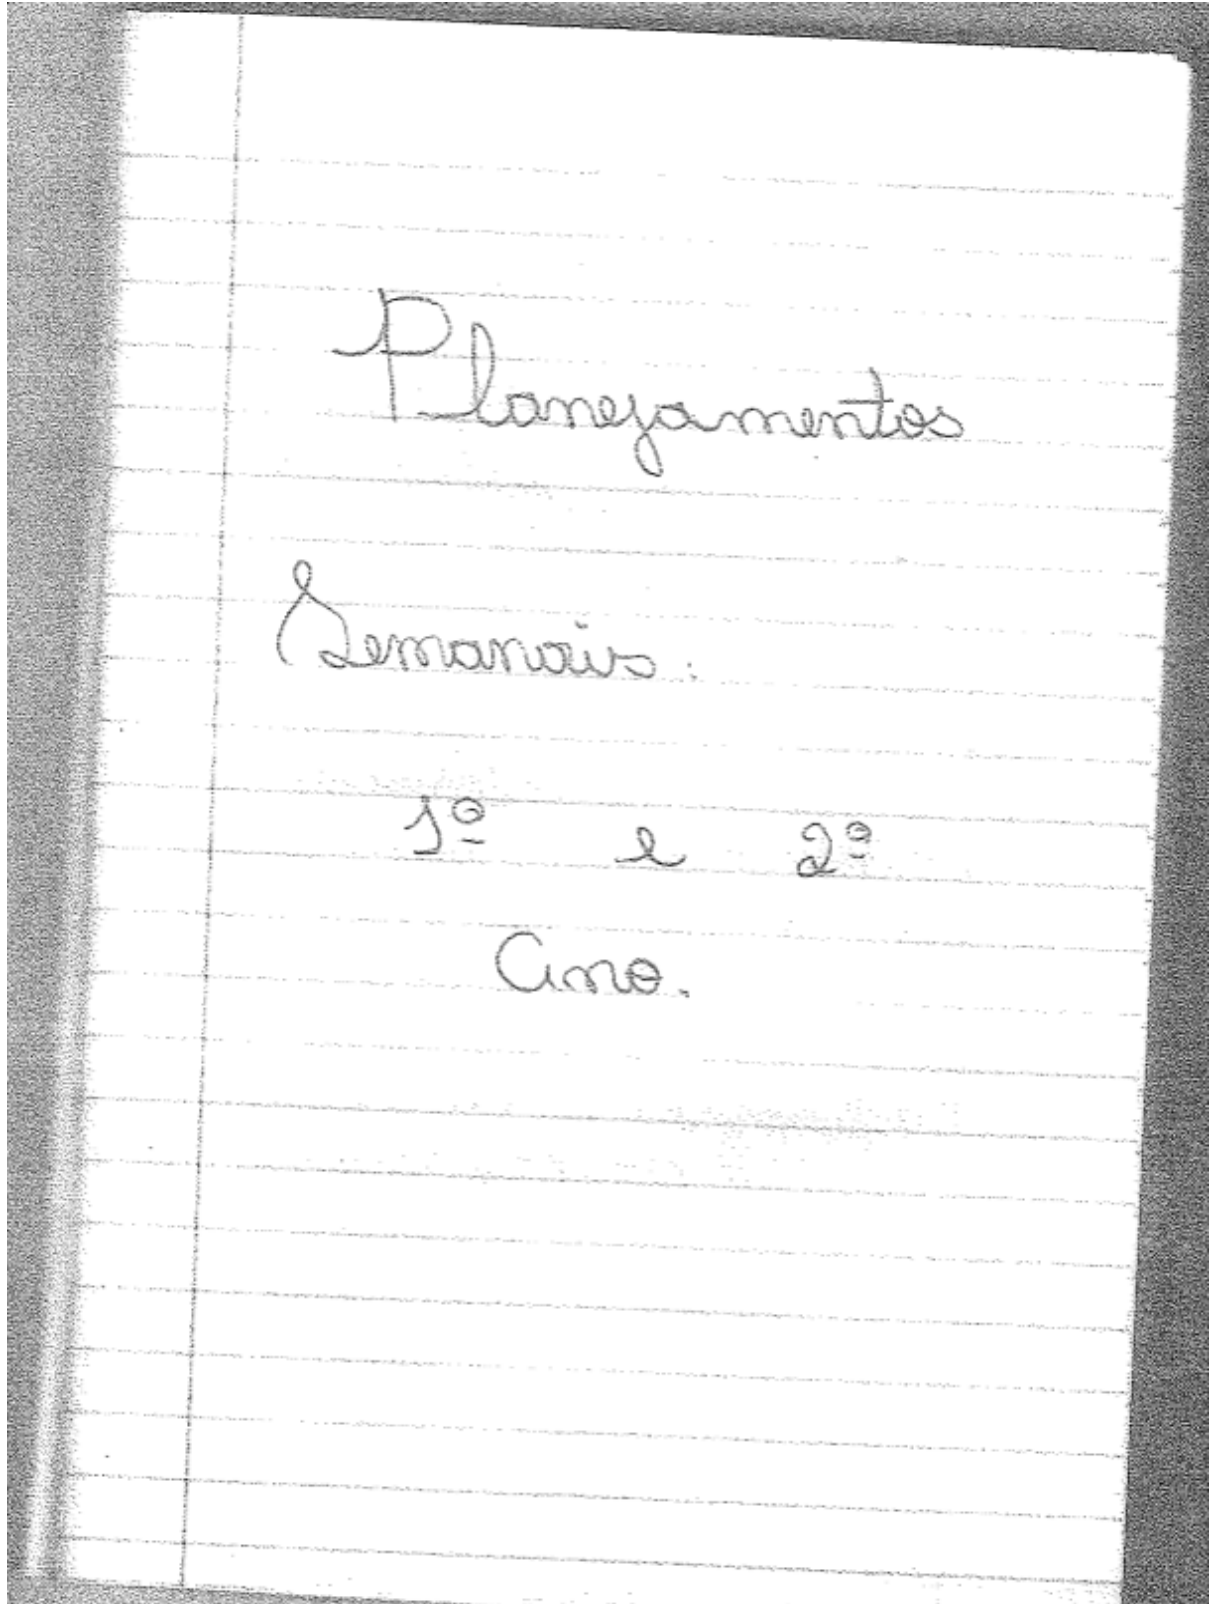 Planejamentos
Semanais:
1º e 2º
Ano.